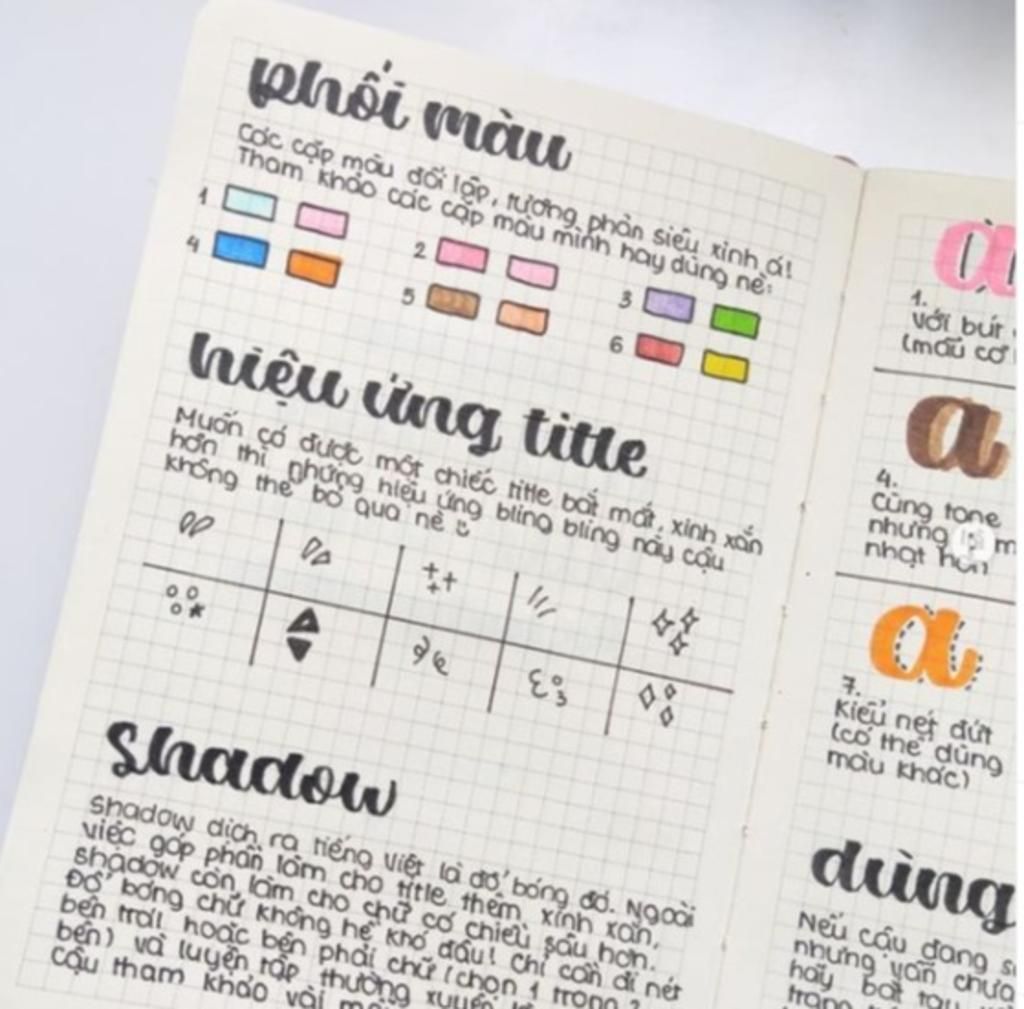 phối màu
Các cặp màu đối lập, tương phản siêu xinh á!
Tham khảo các cặp màu mình hay dùng nè:
1 2 3
4 5 6
hiệu ứng title
Muốn có được một chiếc title bắt mắt, xinh xắn
hơn thì những hiệu ứng bling bling này cậu
không thể bỏ qua nè
shadow
Shadow dịch ra tiếng việt là đổ bóng đó. Ngoài
việc góp phần làm cho title thêm xinh xắn,
shadow còn làm cho chữ có chiều sâu hơn.
Đổ bóng chữ không hề khó đâu! Chỉ cần đi nét
bên trái hoặc bên phải chữ (chọn 1 trong 2
bên) và luyện tập thường xuyên
cậu tham khảo vài
a
1.
Với bút
(màu cơ
a
4.
Cùng tone
nhưng
nhạt hơn
a
7.
Kiểu nét đứt
(có thể dùng
màu khác)
dùng
Nếu cậu đang
nhưng vẫn chưa
hay bắt tay
trang